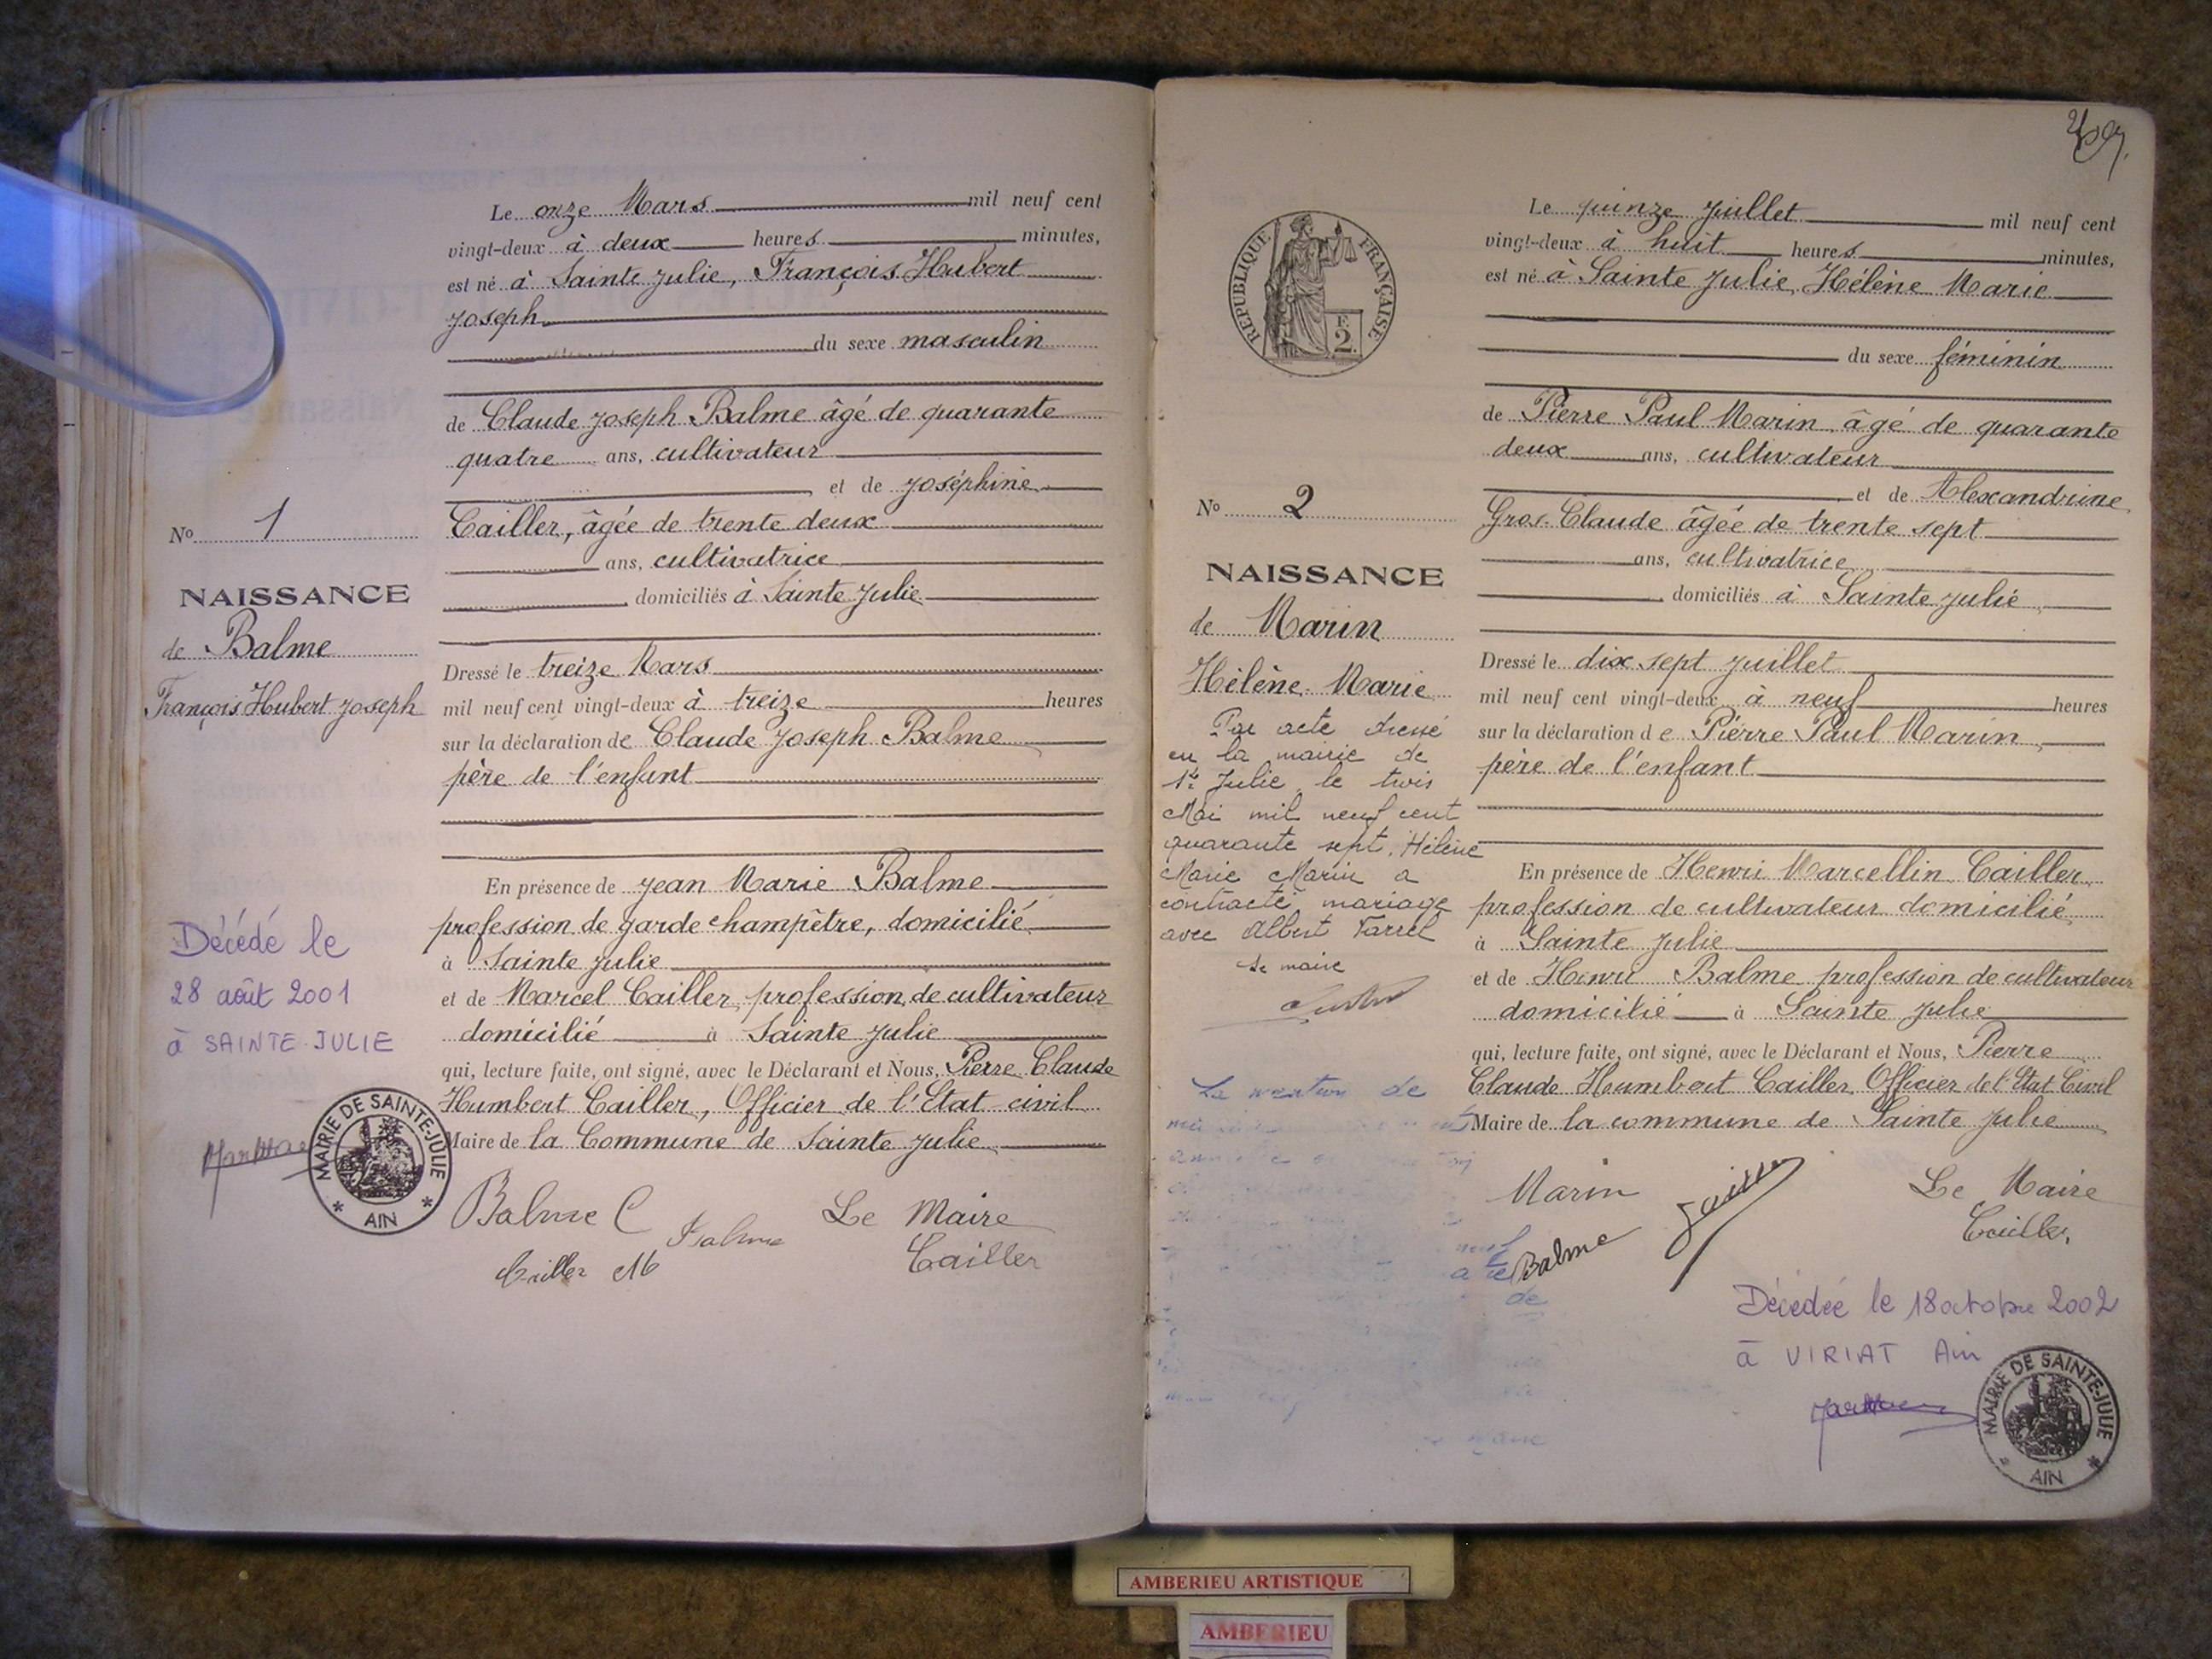 Le onze Mars mil neuf cent
vingt-deux à deux heures minutes,
est né à Sainte Julie, François Hubert
Joseph
du sexe masculin
de Claude Joseph Balme âgé de quarante
quatre ans, cultivateur
et de Joséphine
Cailler, âgée de trente deux
ans, cultivatrice
domiciliés à Sainte Julie
Dressé le treize Mars
mil neuf cent vingt-deux à treize heures
sur la déclaration de Claude Joseph Balme
père de l'enfant
En présence de Jean Marie Balme
profession de garde champêtre, domicilié
à Sainte Julie
et de Marcel Cailler, profession de cultivateur
domicilié à Sainte Julie
qui, lecture faite, ont signé, avec le Déclarant et Nous, Pierre Claude
Humbert Cailler, Officier de l'Etat civil
Maire de la Commune de Sainte Julie
Balme C Balme Le Maire
Cailler M Cailler
No 1
NAISSANCE
de Balme
François Hubert Joseph
Décédé le
28 août 2001
à SAINTE JULIE
MAIRIE DE SAINTE-JULIE
* AIN *
RÉPUBLIQUE FRANÇAISE
2
No 2
NAISSANCE
de Marin
Hélène Marie
Par acte dressé
en la mairie de
Ste Julie le trois
Mai mil neuf cent
quarante sept, Hélène
Marie Marin a
contracté mariage
avec Albert
Le maire
La mention de
Le quinze Juillet mil neuf cent
vingt-deux à huit heures minutes,
est né à Sainte Julie, Hélène Marie
du sexe féminin
de Pierre Paul Marin âgé de quarante
deux ans, cultivateur
et de Alexandrine
Gros Claude âgée de trente sept
ans, cultivatrice
domiciliés à Sainte Julie
Dressé le dix sept Juillet
mil neuf cent vingt-deux à neuf heures
sur la déclaration de Pierre Paul Marin
père de l'enfant
En présence de Henri Marcellin Cailler
profession de cultivateur domicilié
à Sainte Julie
et de Henri Balme profession de cultivateur
domicilié à Sainte Julie
qui, lecture faite, ont signé, avec le Déclarant et Nous, Pierre
Claude Humbert Cailler Officier de l'Etat Civil
Maire de la commune de Sainte Julie
Marin Cailler Le Maire
Balme Cailler
Décédée le 18 octobre 2002
à VIRIAT Ain
MAIRIE DE SAINTE-JULIE
* AIN *
AMBERIEU ARTISTIQUE
AMBERIEU